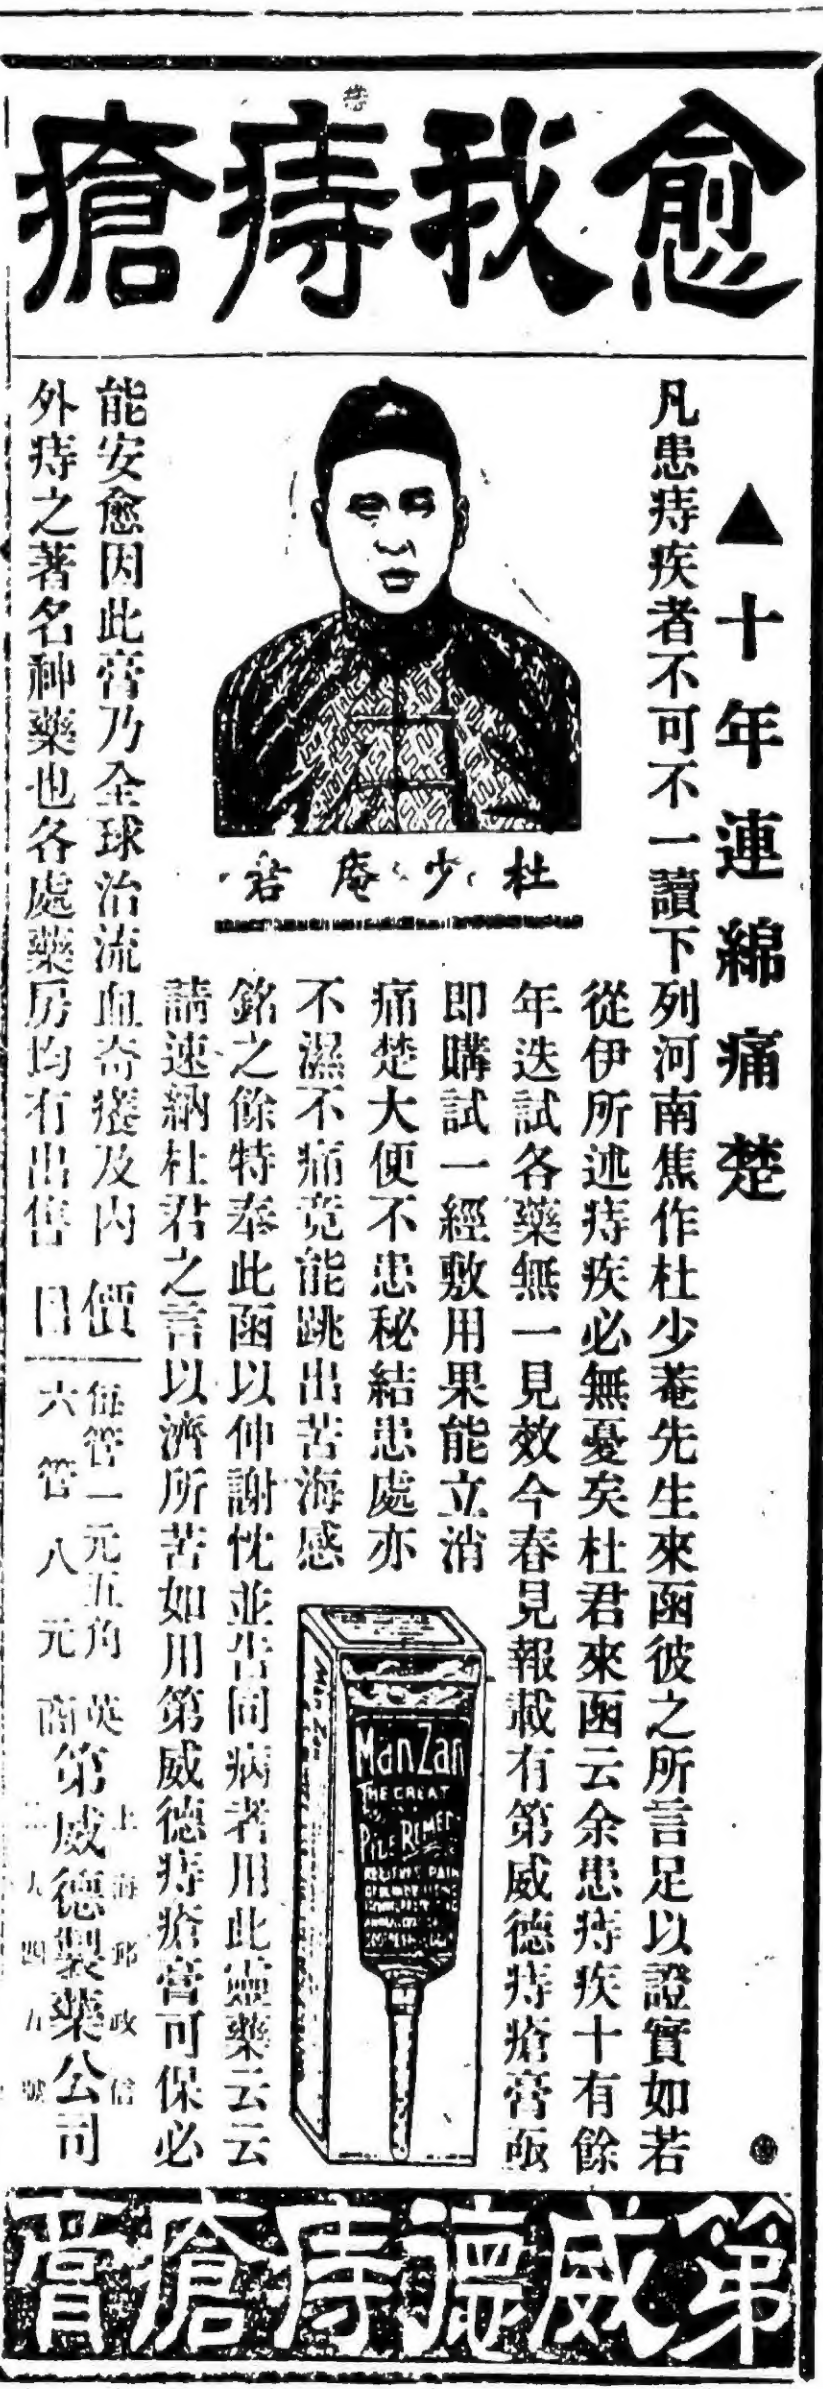 愈我痔瘡
▲十年連綿痛楚
凡患痔疾者不可不一讀下列河南焦作杜少菴先生來函彼之所言足以證實如若
從伊所述痔疾必無憂矣杜君來函云余患痔疾十有餘
年迭試各藥無一見效今春見報載有第威德痔瘡膏亟
即購試一經敷用果能立消
痛楚大便不患秘結患處亦
不濕不痛竟能跳出苦海感
銘之餘特奉此函以伸謝忱並告同病者用此靈藥云云
請速納杜君之言以濟所苦如用第威德痔瘡膏可保必
能安愈因此膏乃全球治流血奇癢及內
外痔之著名神藥也各處藥房均有出售
杜少庵君
ManZan
THE GREAT
PILE REMEDY
RELIEVES PAIN
Man Zan
價目
每管一元五角
六管八元
英商第威德製藥公司
上海郵政信
二九四五號
第威德痔瘡膏